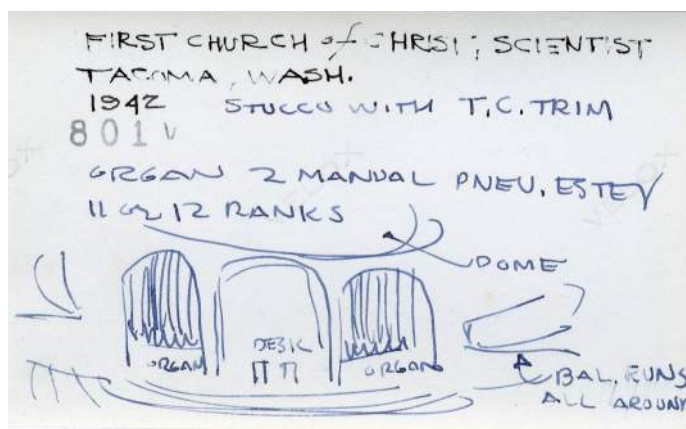 FIRST CHURCH of CHRIST, SCIENTIST
TACOMA, WASH.
1942 STUCCO WITH T.C. TRIM
801
ORGAN 2 MANUAL PNEU. ESTEY
11 or 12 RANKS
DOME
DESK
ORGAN
ORGAN
BAL. RUNS
ALL AROUND